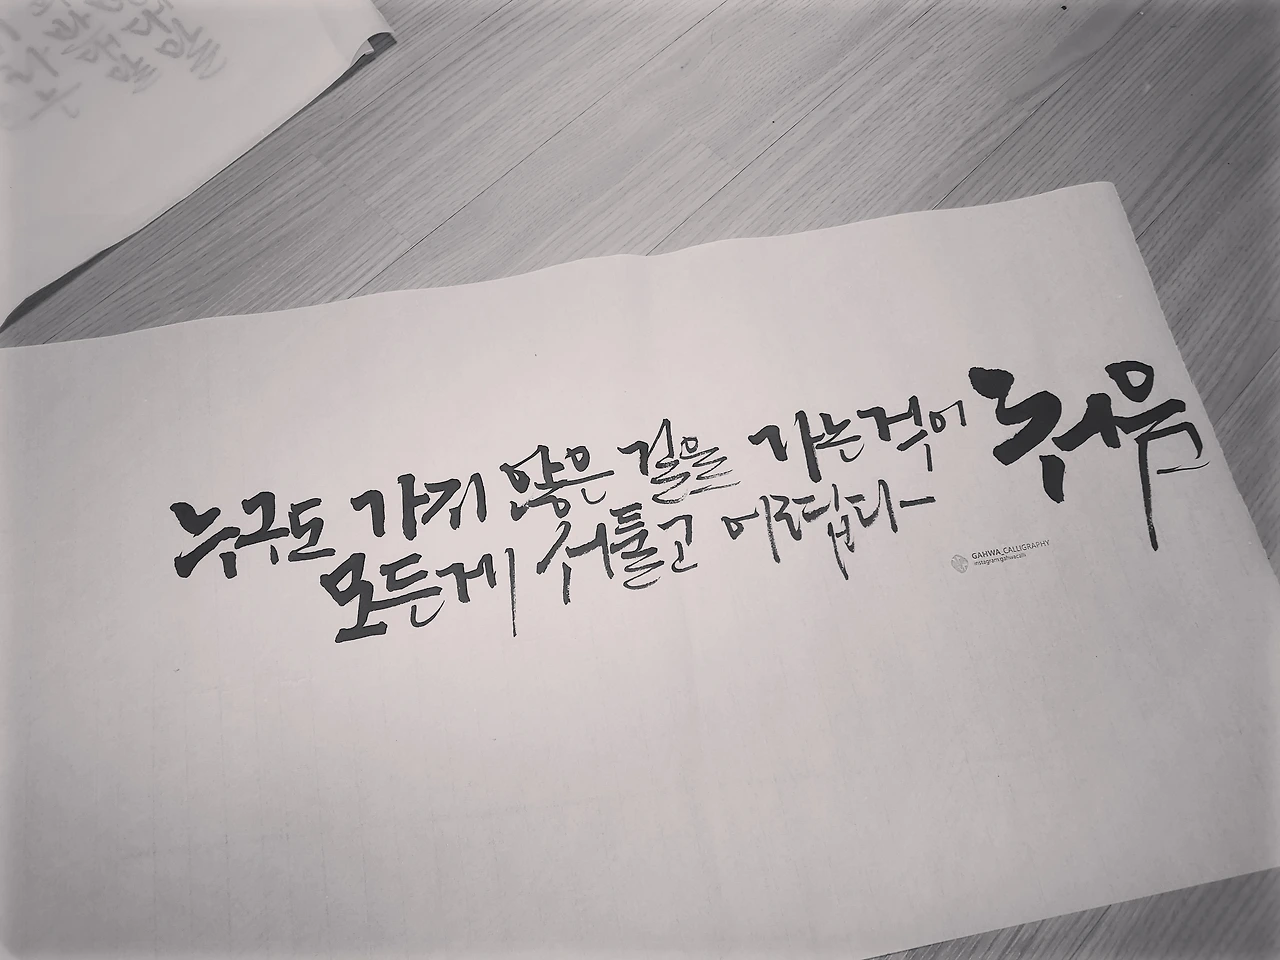 누구도 가지 않은 길을 가는것이 처음
모든게 서툴고 어렵다
GAHWA_CALLIGRAPHY
instagram:gahwacalli